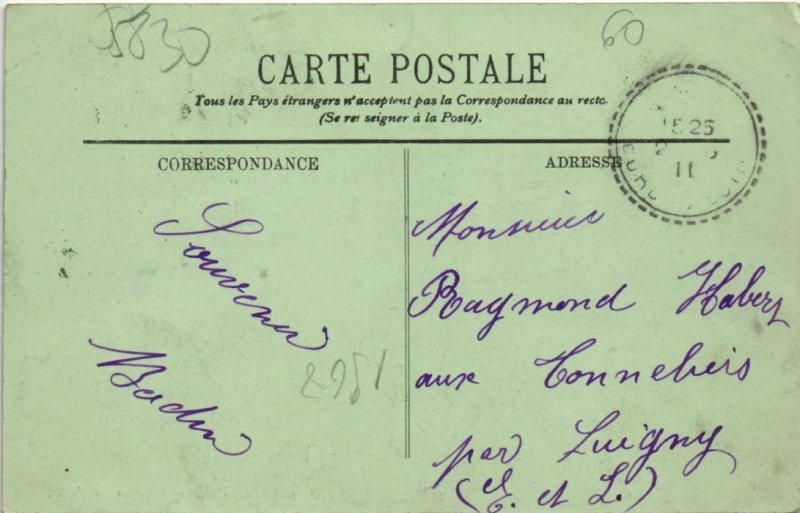 5830
60
CARTE POSTALE
Tous les Pays étrangers n'acceptent pas la Correspondance au recto.
(Se renseigner à la Poste).
CORRESPONDANCE
ADRESSE
15 25
11
Souvenir
Badin
Monsieur
Raymond Habert
aux Tonneliers
par Luigny
(E. et L.)